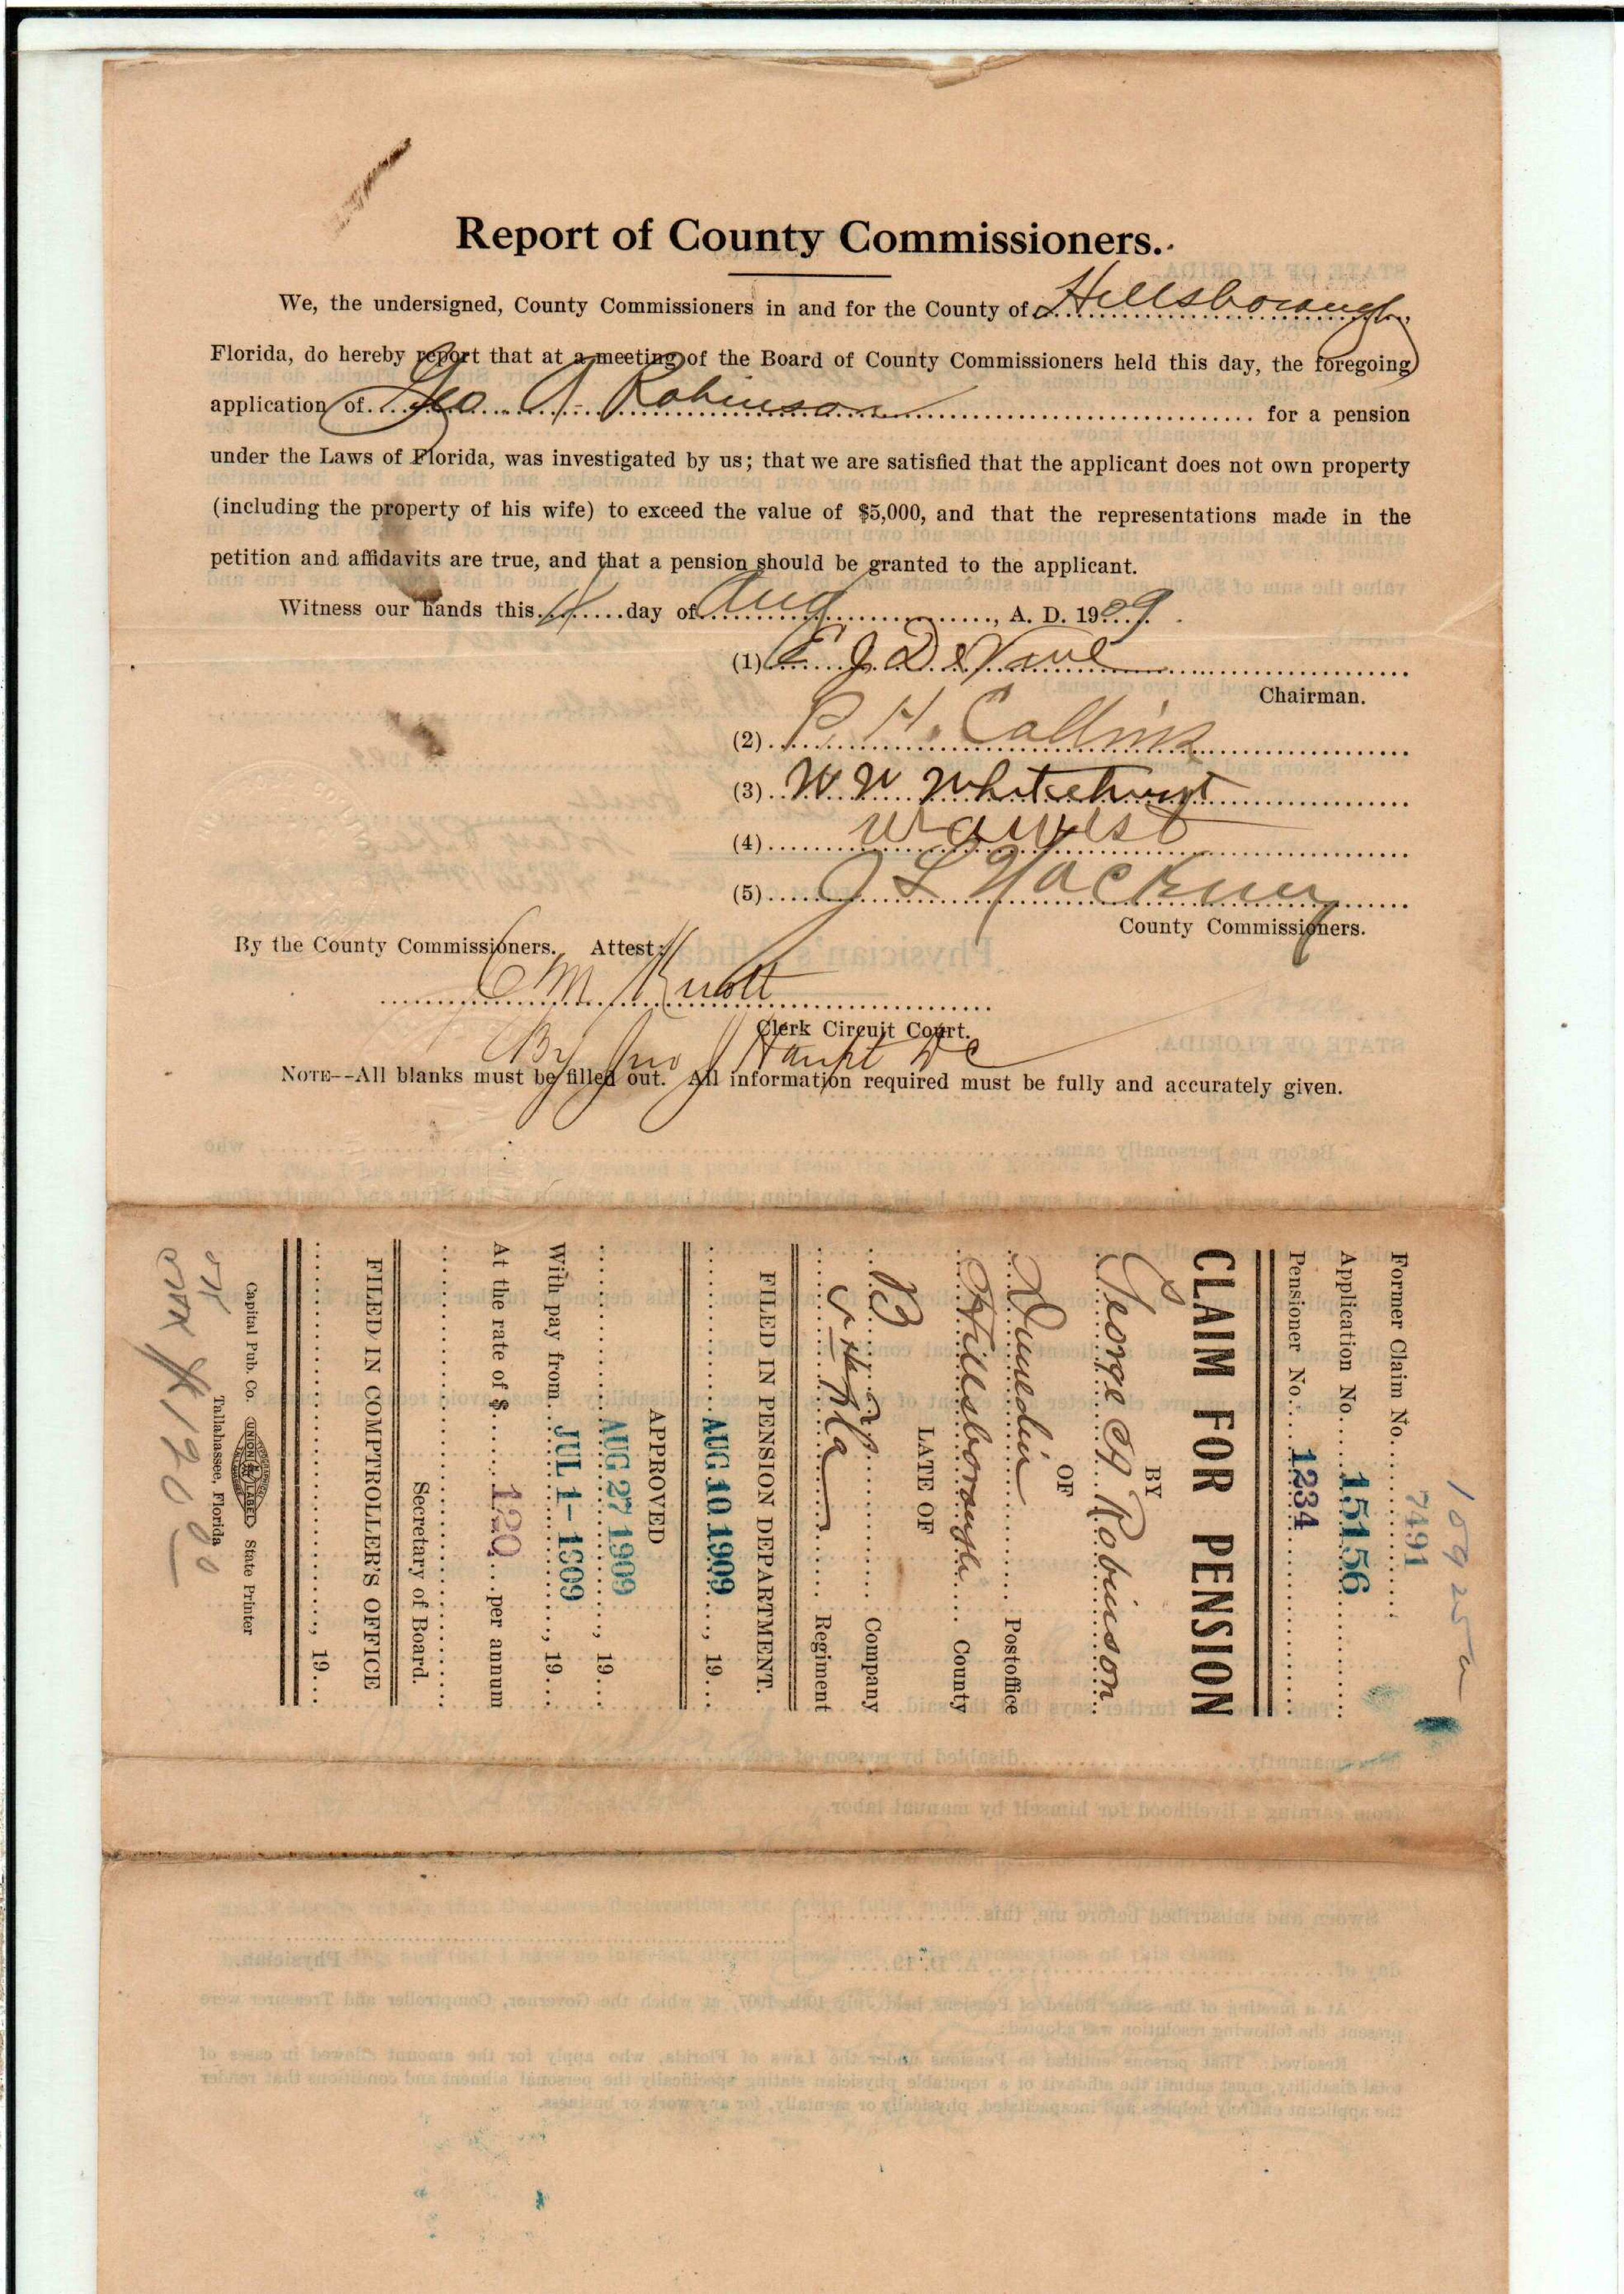 Report of County Commissioners.
We, the undersigned, County Commissioners in and for the County of Hillsborough
Florida, do hereby report that at a meeting of the Board of County Commissioners held this day, the foregoing
application of Geo A Robinson for a pension
under the Laws of Florida, was investigated by us; that we are satisfied that the applicant does not own property
(including the property of his wife) to exceed the value of $5,000, and that the representations made in the
petition and affidavits are true, and that a pension should be granted to the applicant.
Witness our hands this 4 day of Aug, A. D. 1909.
(1) E. J. DeVine
Chairman.
(2) P. H. Collins
(3) W. W. Whitehurst
(4) W A West
(5) J L Hackney
County Commissioners.
By the County Commissioners. Attest:
C M Knott
Clerk Circuit Court.
By Jno J Haupt DC
NOTE--All blanks must be filled out. All information required must be fully and accurately given.
Former Claim No. 7491
Application No. 15156
Pensioner No. 1234
CLAIM FOR PENSION
BY
George A Robinson
OF
Dunedin Postoffice
Hillsborough County
LATE OF
B Company
5th Fla Regiment
FILED IN PENSION DEPARTMENT.
AUG 10 1909, 19...
APPROVED
AUG 27 1909, 19...
With pay from JUL 1- 1909, 19...
At the rate of $ 120 per annum
Secretary of Board.
FILED IN COMPTROLLER'S OFFICE
, 19...
Capital Pub. Co. UNION LABEL State Printer
Tallahassee, Florida
$120 00